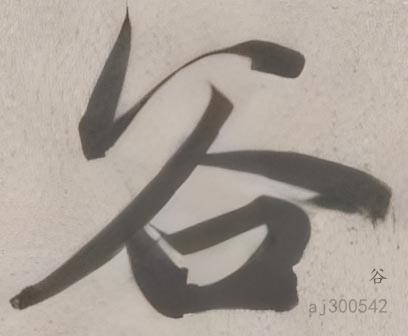 谷
谷
aj300542